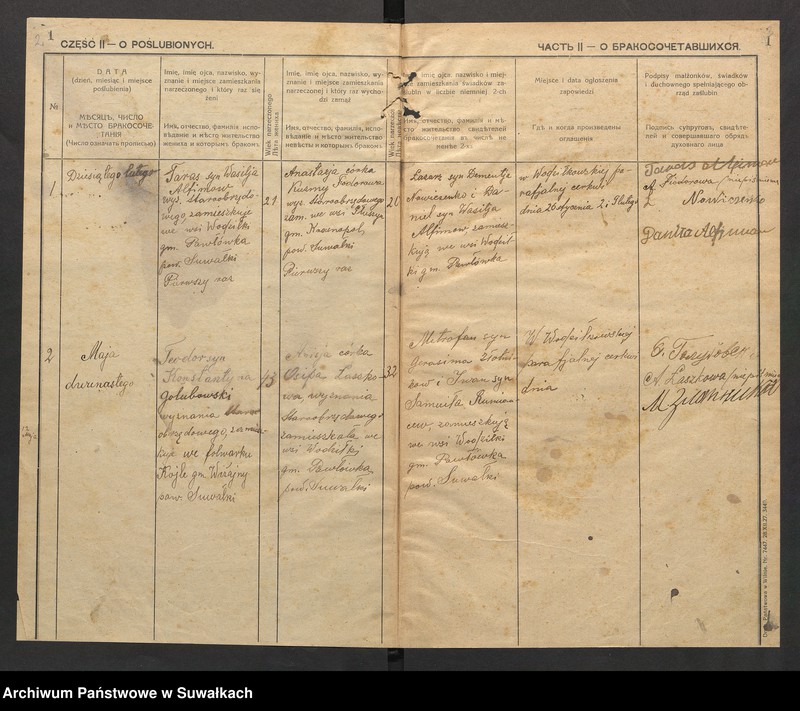 1
CZĘŚĆ II — O POŚLUBIONYCH.
ЧАСТЬ II — О БРАКОСОЧЕТАВШИХСЯ.
1
№
DATA
(dzień, miesiąc i miejsce
poślubienia)
МѢСЯЦЪ, ЧИСЛО
и МѢСТО БРАКОСОЧЕ
ТАНІЯ
(Число означать прописью)
Imię, imię ojca, nazwisko, wy-
znanie i miejsce zamieszkania
narzeczonego i który raz się
żeni
Имя, отчество, фамилія, испо-
вѣданіе и мѣсто жительство
жениха и которымъ бракомъ
Wiek narzeczonego
Лѣта жениха
Imię, imię ojca, nazwisko, wy-
znanie i miejsce zamieszkania
narzeczonej i który raz wycho-
dzi zamąż
Имя, отчество, фамилія, испо-
вѣданіе и мѣсто жительство
невѣсты и которымъ бракомъ
imię ojca, nazwisko i miej-
sce zamieszkania świadków za-
ślubin w liczbie niemniej 2-ch
Имя, отчество, фамилія и мѣ-
сто жительство свидѣтелей
бракосочетанія въ числѣ не
менѣе 2-хъ
Miejsce i data ogłoszenia
zapowiedzi
Гдѣ и когда произведены
оглашенія
Podpisy małżonków, świadków
i duchownego spełniającego ob-
rząd zaślubin
Подпись супруговъ, свидѣте-
лей и совершившаго обрядъ
духовнаго лица
1
Dziesiątego lutego
Taras syn Wasilja
Alfimow
wyz. staroobrzędo-
wego, zamieszkuje
we wsi Wodziłki
gm. Pawłówka
pow. Suwałki
Pierwszy raz
21
Anastazja córka
Fiodorowa
wyz. staroobrzędowego
zam. we wsi
gm. Krasnopol
pow. Suwałki
Pierwszy raz
20
Łazarz syn Dementja
Nowiczenko i Da-
niel syn Wasilja
Alfimow zamiesz-
kują we wsi Wodził-
ki gm. Pawłówka
w Wodziłkowskiej pa-
rafjalnej cerkwi
dnia 26 stycznia 2 i 9 lutego
Taras Alfimow
A. Fiodorowa (niepiśmienna)
Ł. Nowiczenko
2
Maja
dwunastego
Teodor syn
Konstantyna
Gołubowski
wyznania staro-
obrzędowego, zamiesz-
kuje we folwarku
Kojle gm. Wiżajny
pow. Suwałki
43
córka
Osifa Łaszko-
wa, wyznania
staroobrzędowego
zamieszkała we
wsi Wodziłki
gm. Pawłówka
pow. Suwałki
32
Mitrofan syn
Gerasima
i Iwan syn
Samuiła
zamieszkują
we wsi Wodziłki
gm. Pawłówka
pow. Suwałki
W Wodziłkowskiej
parafjalnej cerkwi
dnia
A. Łaszkowa
Archiwum Państwowe w Suwałkach